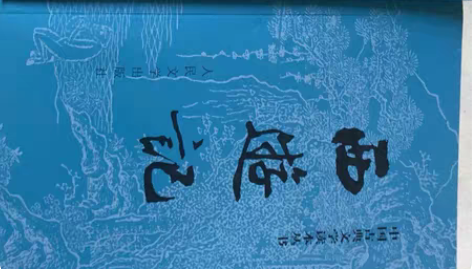 中国古典文学读本丛书
西遊记
人民文学出版社